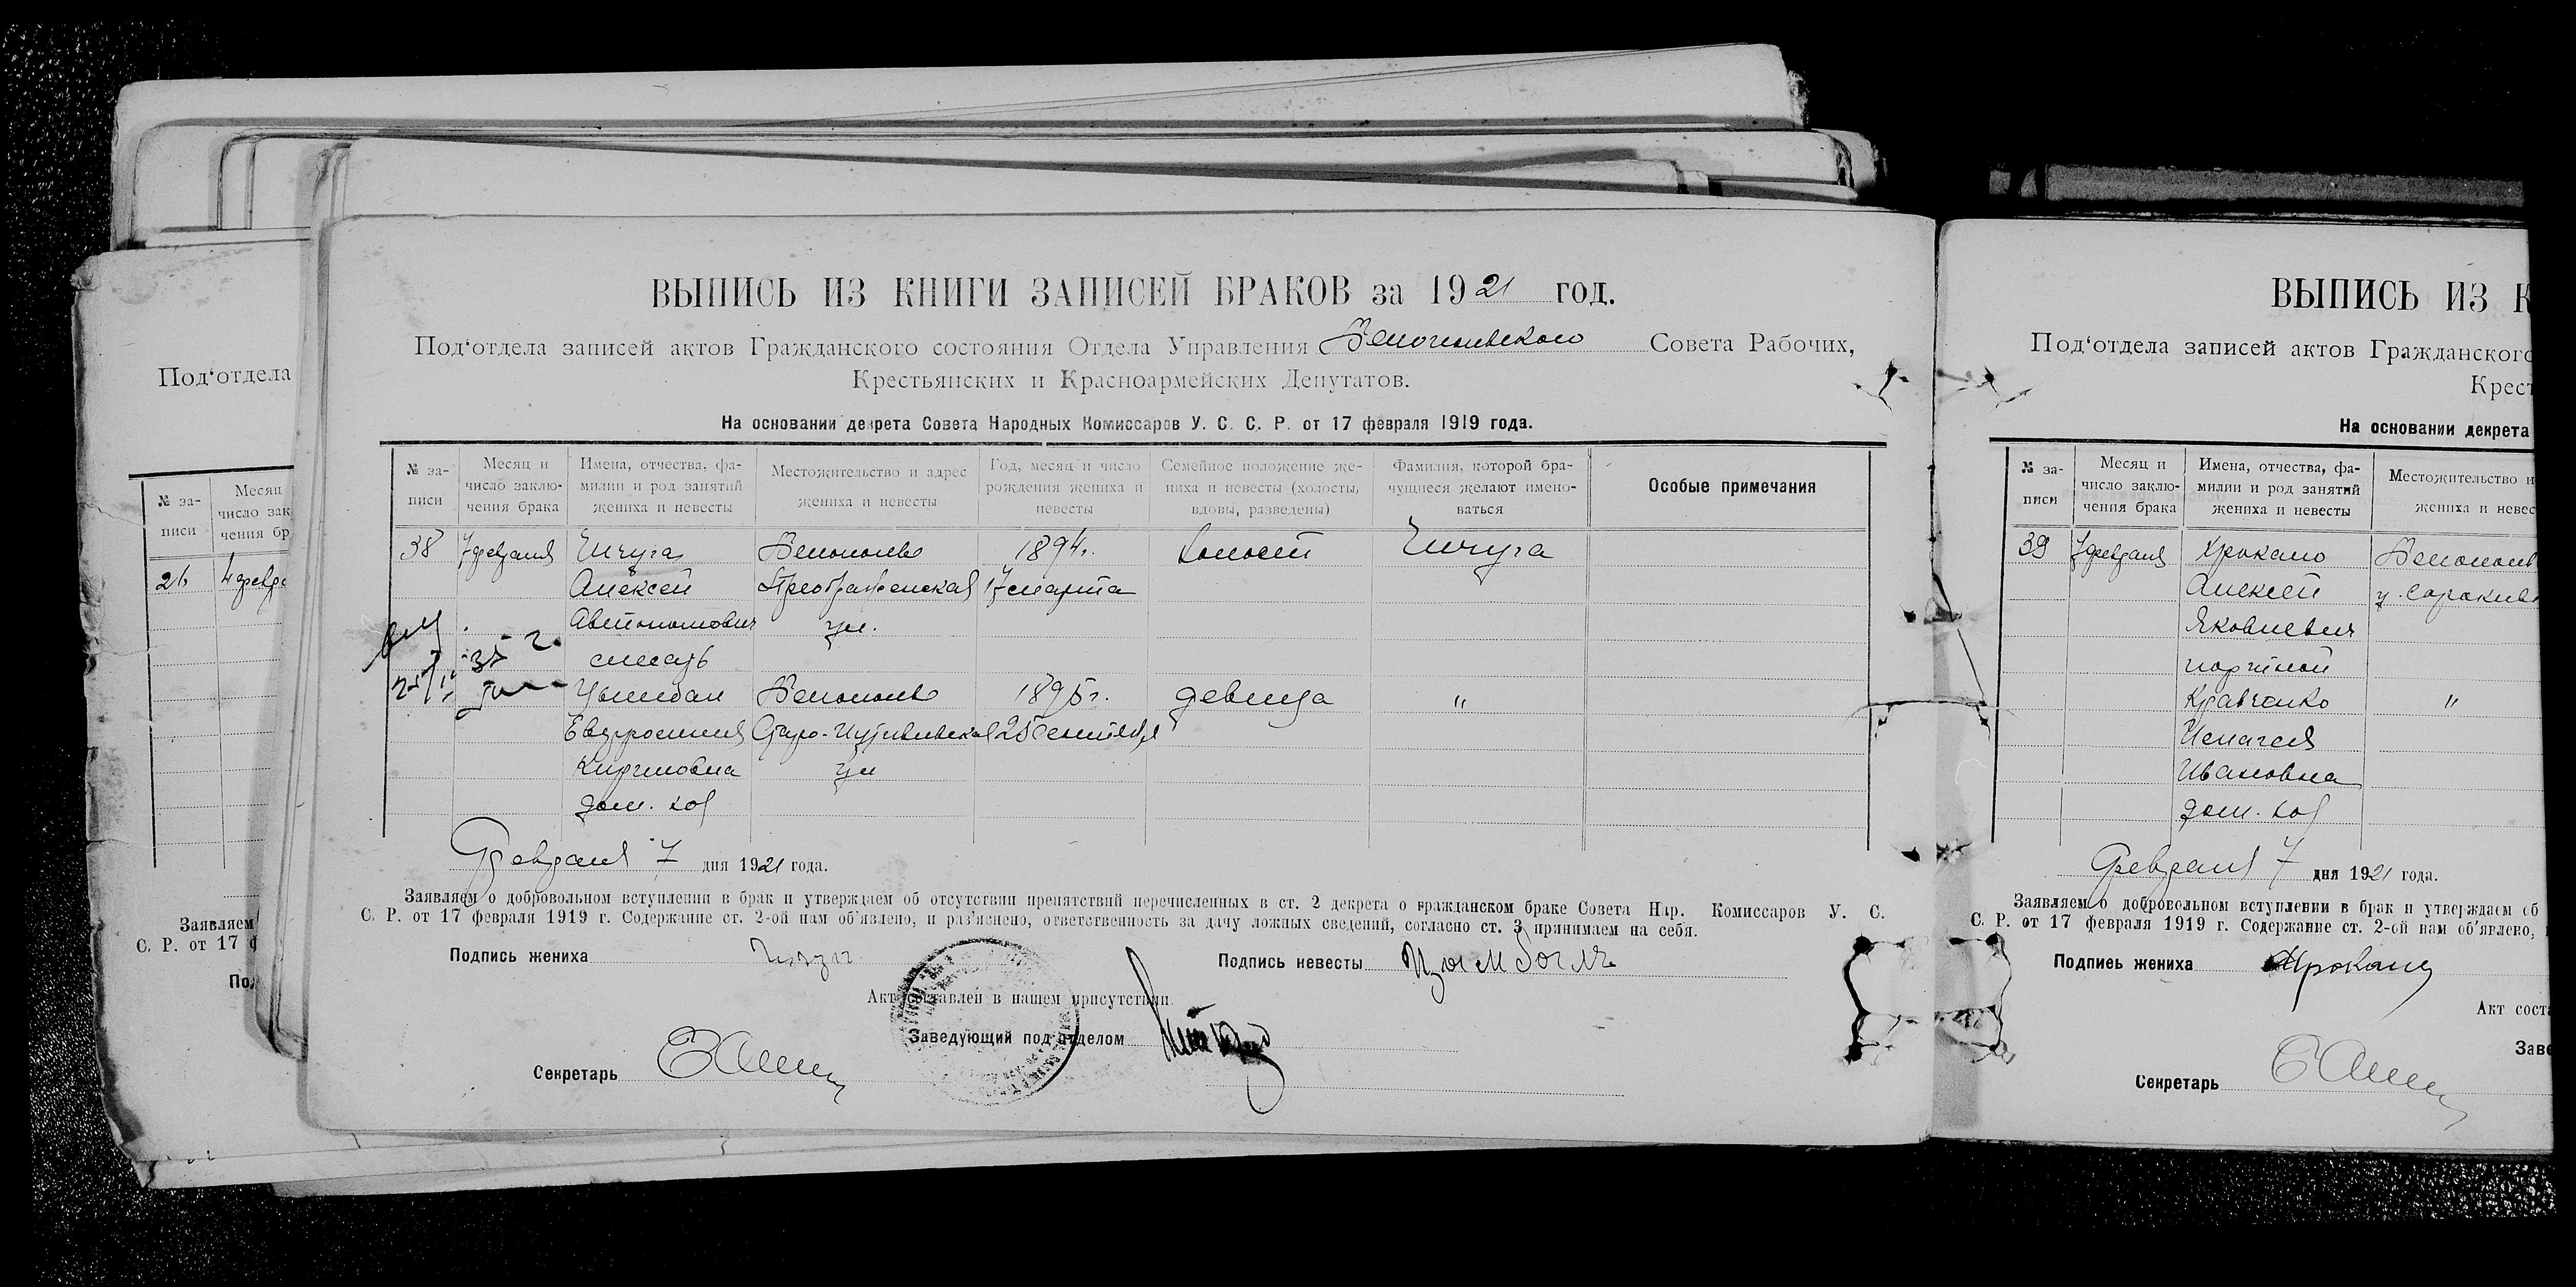 Под‘отдела
№ за-
писи
Месяц
число зак
чения бр
26
4 февр
Заявляем
С. Р. от 17 ф
ВЫПИСЬ ИЗ КНИГИ ЗАПИСЕЙ БРАКОВ за 1921 год.
Под‘отдела записей актов Гражданского состояния Отдела Управления Белопольского Совета Рабочих,
Крестьянских и Красноармейских Депутатов.
На основании декрета Совета Народных Комиссаров У. С. С. Р. от 17 февраля 1919 года.
№ за-
писи
Месяц и
число заклю-
чения брака
Имена, отчества, фа-
милии и род занятий
жениха и невесты
Местожительство и адрес
жениха и невесты
Год, месяц и число
рождения жениха и
невесты
Семейное положение же-
ниха и невесты (холосты,
вдовы, разведены)
Фамилия, которой бра-
чущиеся желают имено-
ваться
Особые примечания
38 7 февраля Белополье 1894г. холост
Алексей Преображенская 17 марта
Автономович ул.
слесарь
Цымбал Белополье 1895г. девица "
Евфросиния Старо-Путивльская 25 сентября
Кирилловна ул
дом. хоз
Февраля 7 дня 1921 года.
Заявляем о добровольном вступлении в брак и утверждаем об отсутствии препятствий перечисленных в ст. 2 декрета о гражданском браке Совета Нар. Комиссаров У. С.
С. Р. от 17 февраля 1919 г. Содержание ст. 2-ой нам об‘явлено, и раз‘яснено, ответственность за дачу ложных сведений, согласно ст. 3 принимаем на себя.
Подпись жениха
Подпись невесты Цымбаль
Акт составлен в нашем присутствии.
Заведующий под‘отделом
Секретарь
ВЫПИСЬ ИЗ К
Под‘отдела записей актов Гражданского
Крест
На основании декрета
№ за-
писи
Месяц и
число заклю-
чения брака
Имена, отчества, фа-
милии и род занятий
жениха и невесты
Местожительство и
жениха и невес
39 7 февраля Белополь
Алексей
Яковлевич
портной
Кравченко "
Ивановна
дом. хоз
Февраля 7 дня 1921 года.
Заявляем о добровольном вступлении в брак и утверждаем об
С. Р. от 17 февраля 1919 г. Содержание ст. 2-ой нам об‘явлено,
Подпись жениха
Акт соста
Заве
Секретарь